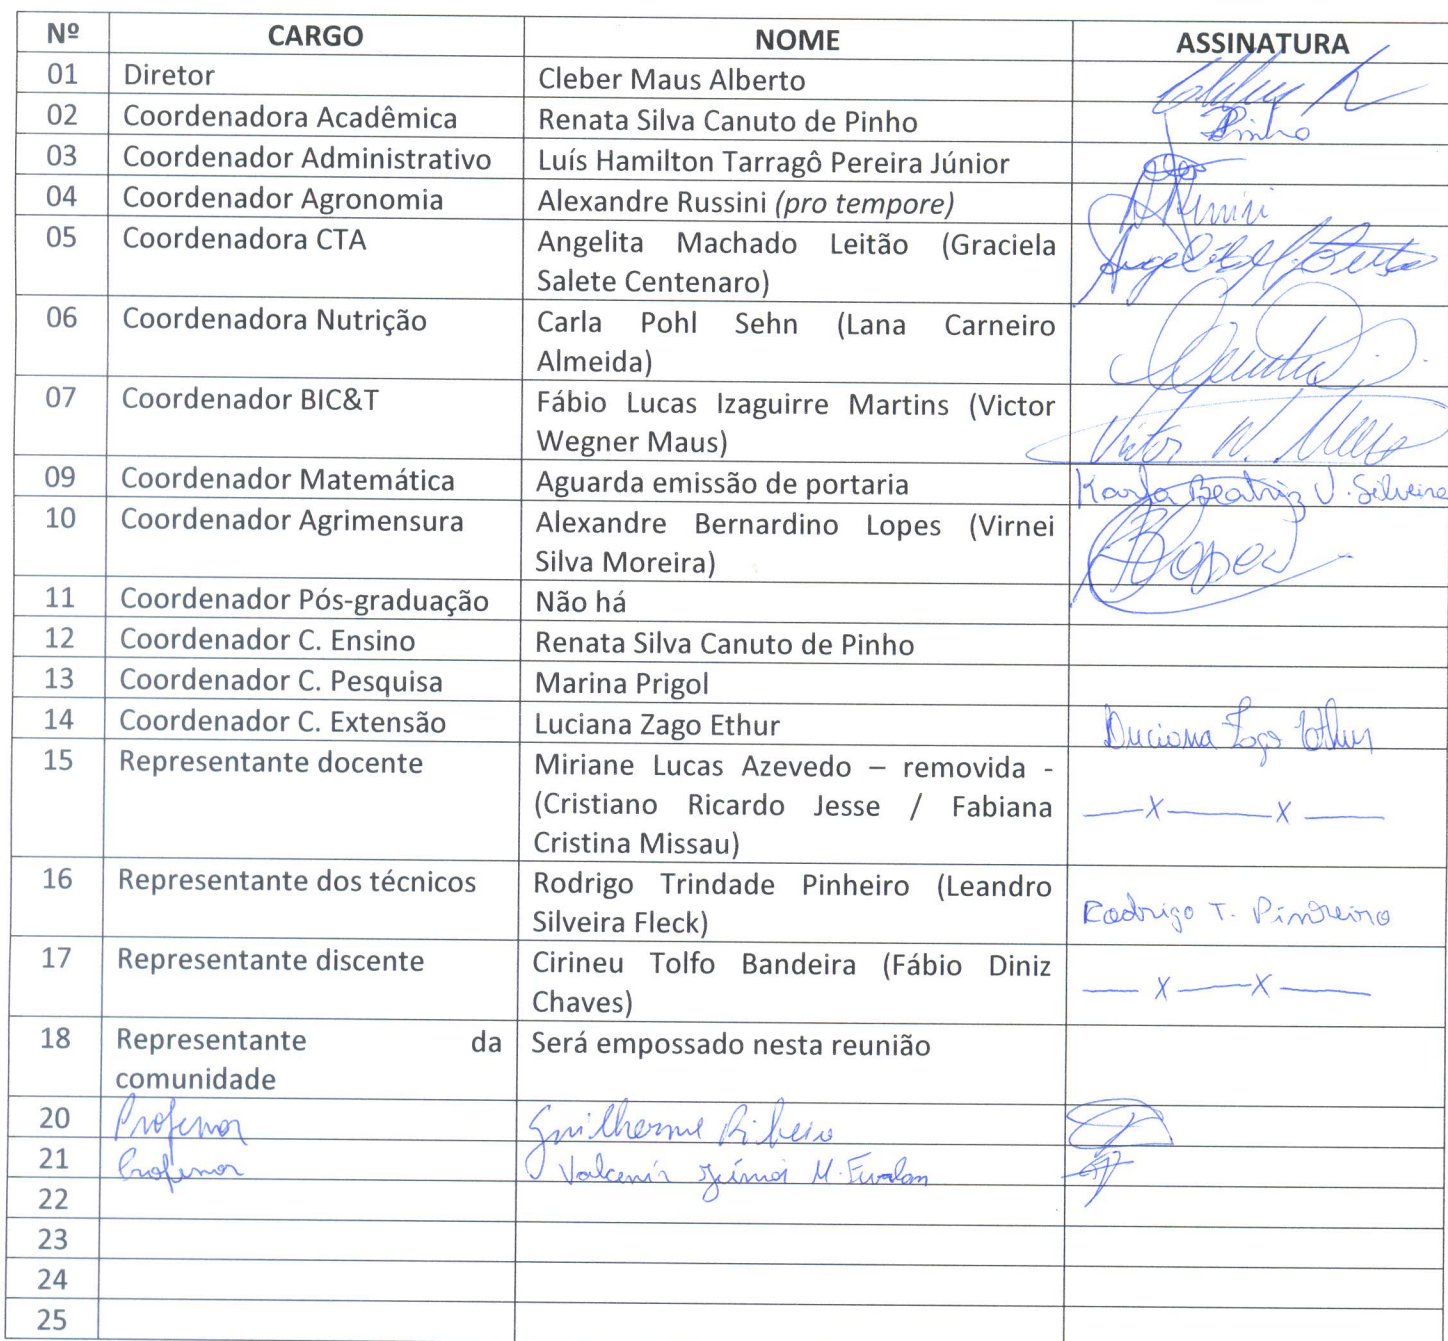 Nº CARGO NOME ASSINATURA
01 Diretor Cleber Maus Alberto
02 Coordenadora Acadêmica Renata Silva Canuto de Pinho Pinho
03 Coordenador Administrativo Luís Hamilton Tarragô Pereira Júnior
04 Coordenador Agronomia Alexandre Russini (pro tempore)
05 Coordenadora CTA Angelita Machado Leitão (Graciela
Salete Centenaro)
06 Coordenadora Nutrição Carla Pohl Sehn (Lana Carneiro
Almeida)
07 Coordenador BIC&T Fábio Lucas Izaguirre Martins (Victor
Wegner Maus) Victor W. Maus
09 Coordenador Matemática Aguarda emissão de portaria Karla Beatriz V. Silveira
10 Coordenador Agrimensura Alexandre Bernardino Lopes (Virnei
Silva Moreira) Lopes
11 Coordenador Pós-graduação Não há
12 Coordenador C. Ensino Renata Silva Canuto de Pinho
13 Coordenador C. Pesquisa Marina Prigol
14 Coordenador C. Extensão Luciana Zago Ethur Luciana Zago Ethur
15 Representante docente Miriane Lucas Azevedo – removida -
(Cristiano Ricardo Jesse / Fabiana —x——x—
Cristina Missau)
16 Representante dos técnicos Rodrigo Trindade Pinheiro (Leandro
Silveira Fleck) Rodrigo T. Pinheiro
17 Representante discente Cirineu Tolfo Bandeira (Fábio Diniz
Chaves) — x ——x —
18 Representante da Será empossado nesta reunião
comunidade
20 Professor Guilherme Ribeiro
21 Professor Valcenir Júnior M.
22
23
24
25